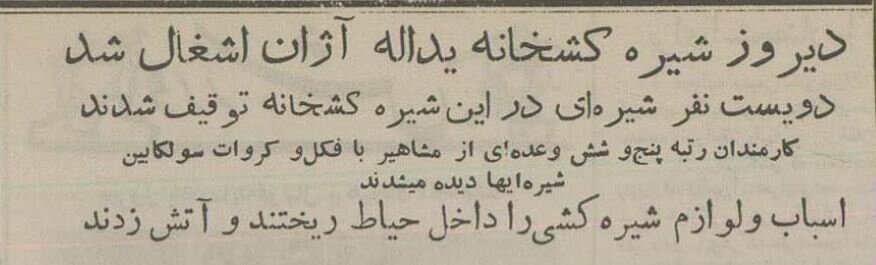 دیروز شیره کشخانه یداله آژان اشغال شد
دویست نفر شیره‌ای در این شیره کشخانه توقیف شدند
کارمندان رتبه پنج‌و شش وعده‌ای از مشاهیر با فکل‌و کروات سولکابین
شیره‌ایها دیده میشدند
اسباب ولوازم شیره کشی‌را داخل حیاط ریختند و آتش زدند